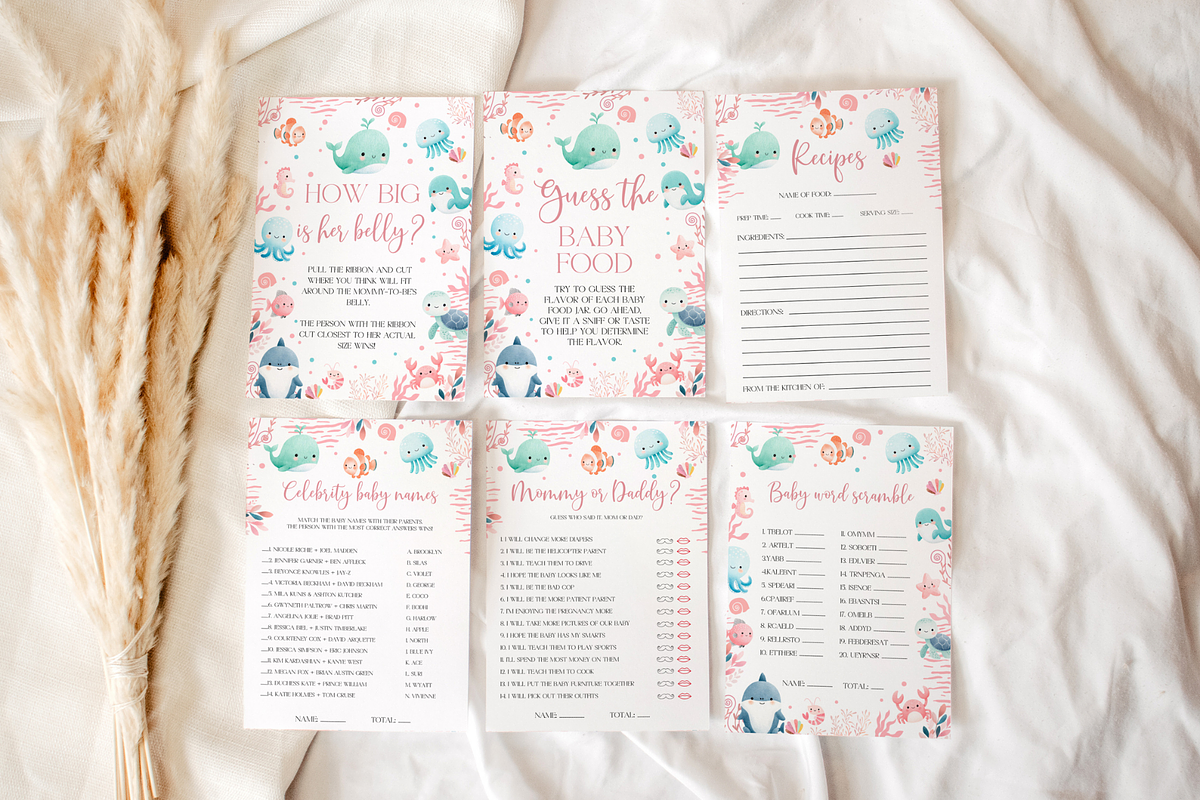 HOW BIG
is her belly?
PULL THE RIBBON AND CUT
WHERE YOU THINK WILL FIT
AROUND THE MOMMY-TO-BE'S
BELLY.
THE PERSON WITH THE RIBBON
CUT CLOSEST TO HER ACTUAL
SIZE WINS!
Guess the
BABY
FOOD
TRY TO GUESS THE
FLAVOR OF EACH BABY
FOOD JAR. GO AHEAD,
GIVE IT A SNIFF OR TASTE
TO HELP YOU DETERMINE
THE FLAVOR.
Recipes
NAME OF FOOD:
PREP TIME: COOK TIME: SERVING SIZE:
INGREDIENTS:
DIRECTIONS:
FROM THE KITCHEN OF:
Celebrity baby names
MATCH THE BABY NAMES WITH THEIR PARENTS.
THE PERSON WITH THE MOST CORRECT ANSWERS WINS!
1. NICOLE RICHIE + JOEL MADDEN A. BROOKLYN
2. JENNIFER GARNER + BEN AFFLECK B. SILAS
3. BEYONCE KNOWLES + JAY-Z C. VIOLET
4. VICTORIA BECKHAM + DAVID BECKHAM D. GEORGE
5. MILA KUNIS & ASHTON KUTCHER E. COCO
6. GWYNETH PALTROW + CHRIS MARTIN F. BODHI
7. ANGELINA JOLIE + BRAD PITT G. HARLOW
8. JESSICA BIEL + JUSTIN TIMBERLAKE H. APPLE
9. COURTENEY COX + DAVID ARQUETTE I. NORTH
10. JESSICA SIMPSON + ERIC JOHNSON J. BLUE IVY
11. KIM KARDASHIAN + KANYE WEST K. ACE
12. MEGAN FOX + BRIAN AUSTIN GREEN L. SURI
13. DUCHESS KATE + PRINCE WILLIAM M. WYATT
14. KATIE HOLMES + TOM CRUISE N. VIVIENNE
NAME: TOTAL:
Mommy or Daddy?
GUESS WHO SAID IT, MOM OR DAD?
1. I WILL CHANGE MORE DIAPERS
2. I WILL BE THE HELICOPTER PARENT
3. I WILL TEACH THEM TO DRIVE
4. I HOPE THE BABY LOOKS LIKE ME
5. I WILL BE THE BAD COP
6. I WILL BE THE MORE PATIENT PARENT
7. I'M ENJOYING THE PREGNANCY MORE
8. I WILL TAKE MORE PICTURES OF OUR BABY
9. I HOPE THE BABY HAS MY SMARTS
10. I WILL TEACH THEM TO PLAY SPORTS
11. I'LL SPEND THE MOST MONEY ON THEM
12. I WILL TEACH THEM TO COOK
13. I WILL PUT THE BABY FURNITURE TOGETHER
14. I WILL PICK OUT THEIR OUTFITS
NAME: TOTAL:
Baby word scramble
1. TBELOT 11. OMYMM
2. ARTELT 12. SOBOETI
3.YABB 13. EDLVIER
4.KALEBNT 14. TRNPENGA
5. SPDEARI 15. ISENOE
6.CPAIIREF 16. EBASNTSI
7. OFARLUM 17. OMEILB
8. RCAELD 18. ADDYD
9. RELLRSTO 19. FEBDERESAT
10. ETTHERE 20. UEYRNSR
NAME: TOTAL: